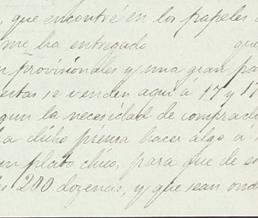 , que encontré en los papeles
me ha entregado que
n provisionales y una gran pa
estas se venden aquí á 17 y 1
gun la necesidad de comprado
a dicho piensa hacer algo a
un plato chico, para que de se
200 dozenas, y que sean ond